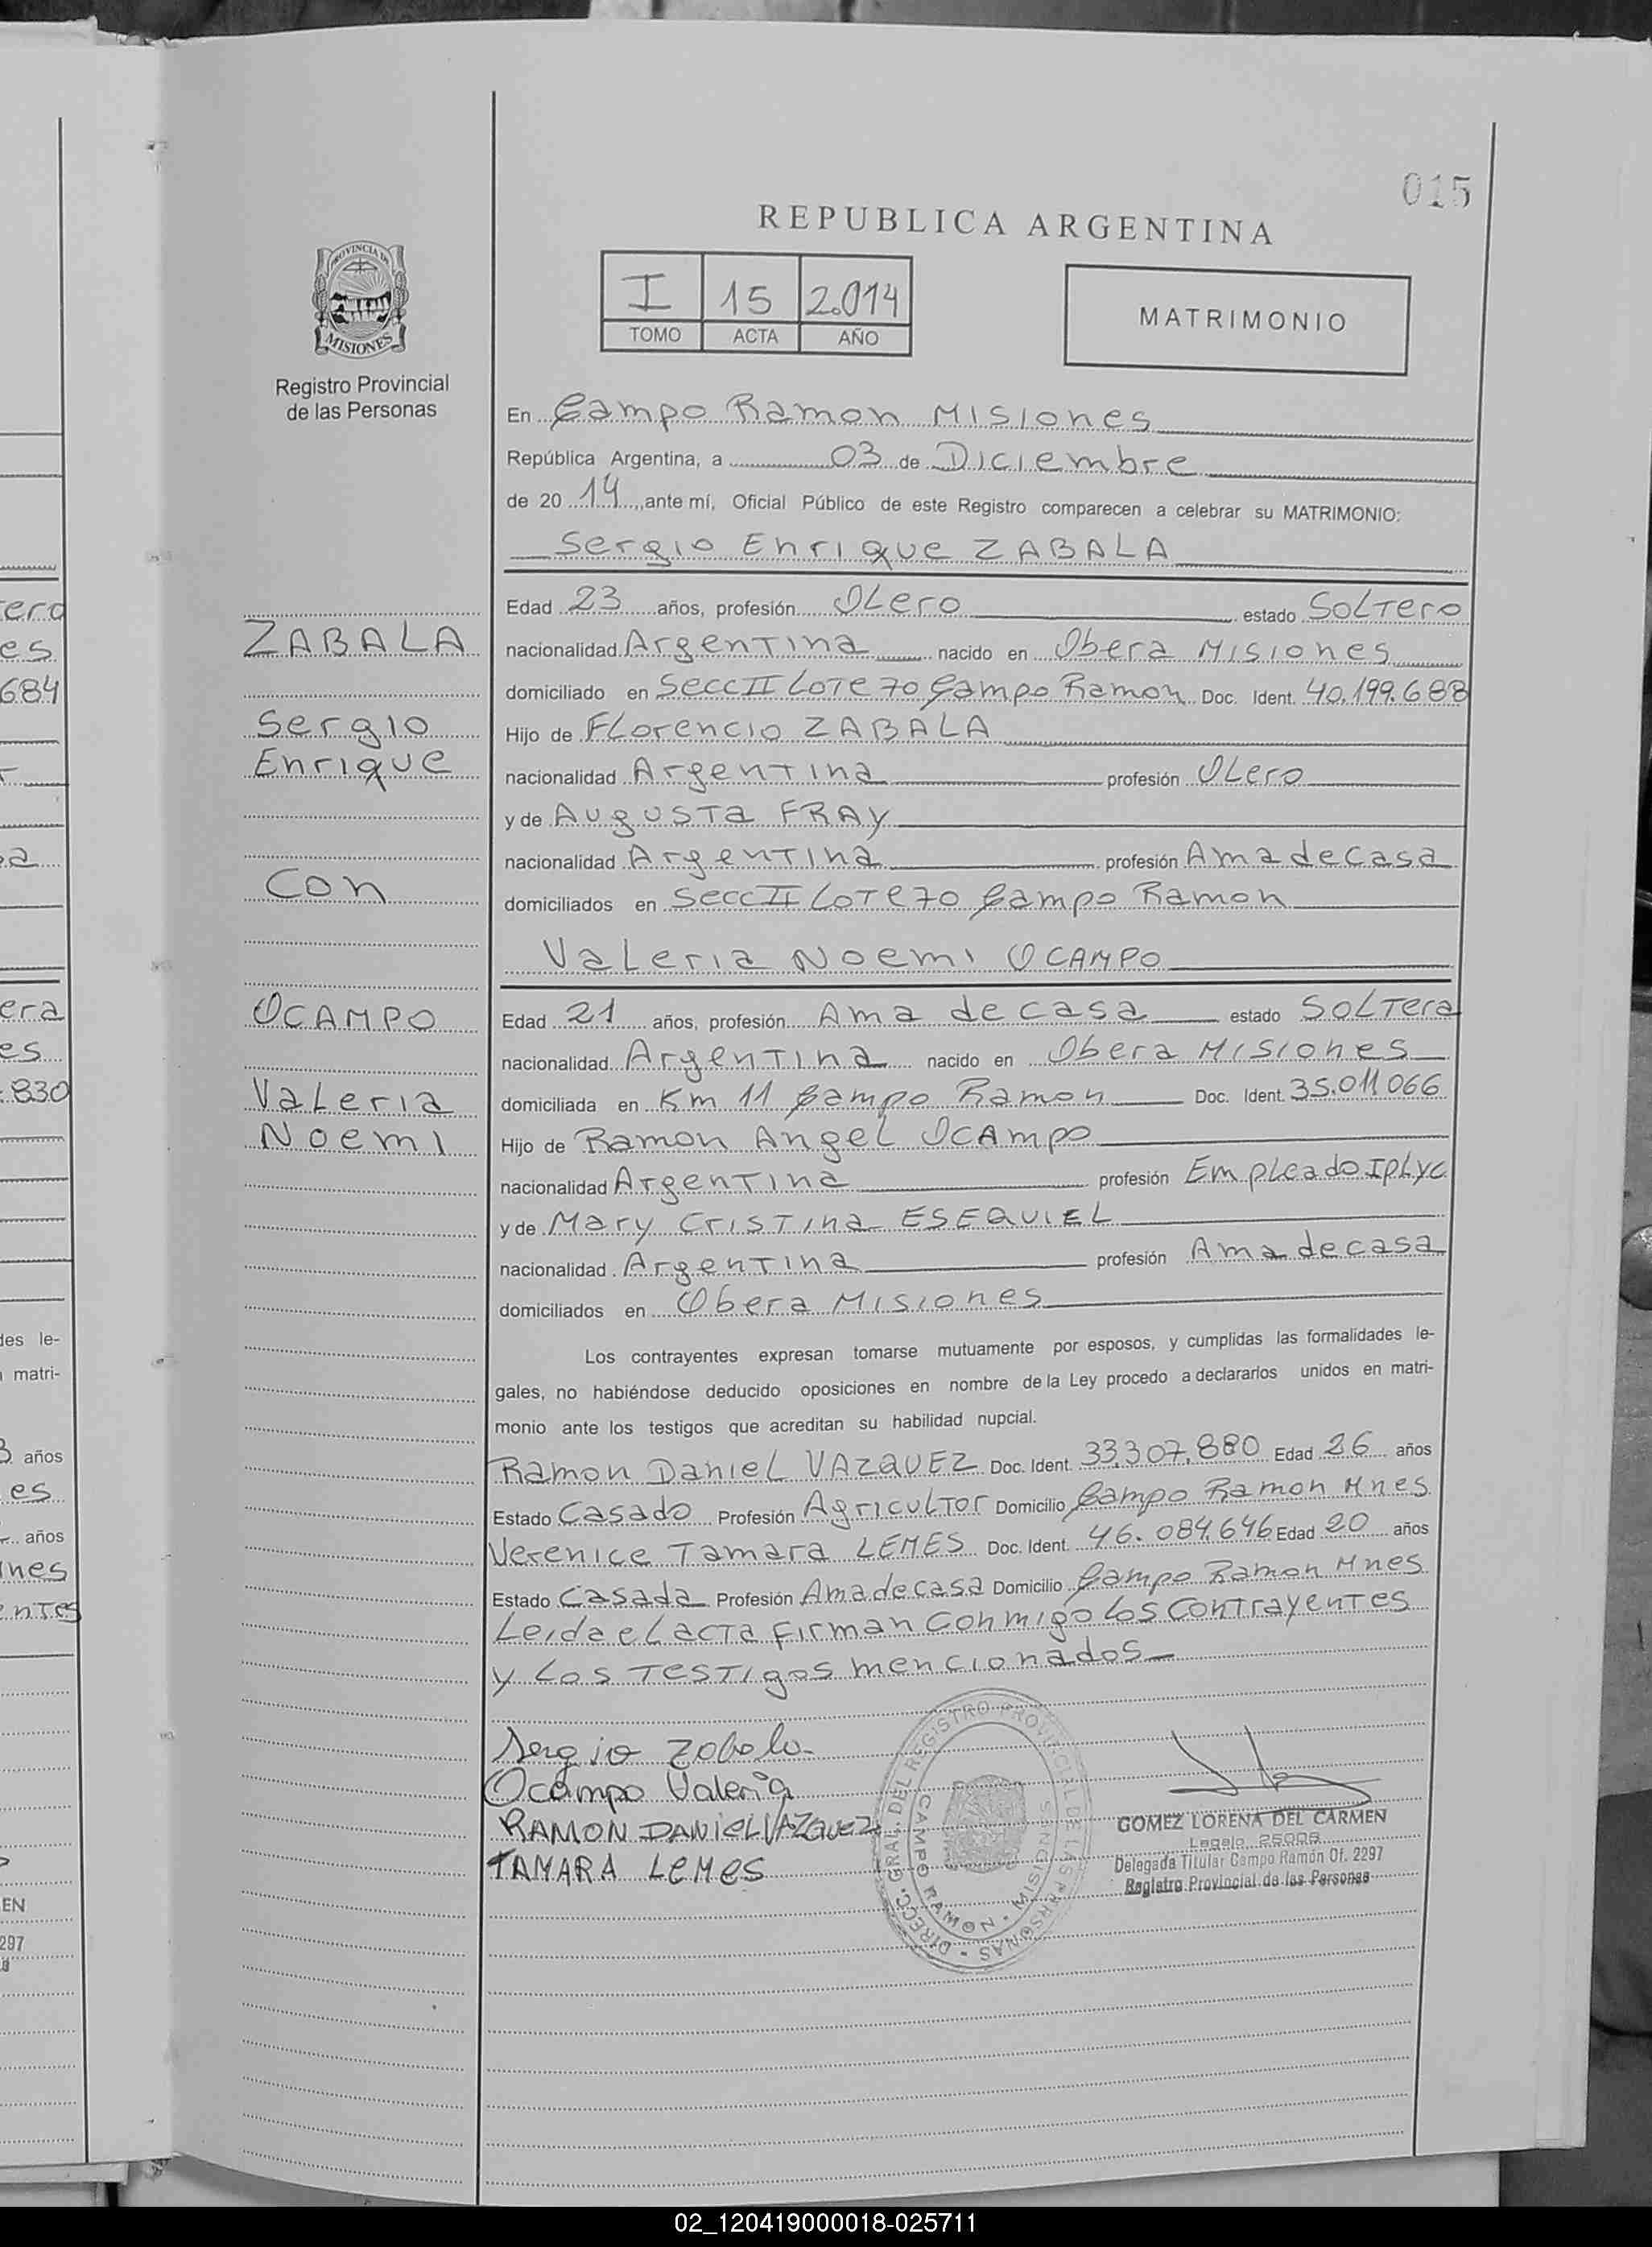 015
REPUBLICA ARGENTINA
PROVINCIA DE
MISIONES
Registro Provincial
de las Personas
I 15 2.014
TOMO ACTA AÑO
MATRIMONIO
En Campo Ramon Misiones
República Argentina, a 03 de Diciembre
de 20 14, ante mí, Oficial Público de este Registro comparecen a celebrar su MATRIMONIO:
Sergio Enrique ZABALA
Edad 23 años, profesión Olero estado Soltero
nacionalidad Argentina nacido en Obera Misiones
domiciliado en Secc II Lote 70 Campo Ramon Doc. Ident. 40.199.688
Hijo de Florencio ZABALA
nacionalidad Argentina profesión Olero
y de Augusta FRAY
nacionalidad Argentina profesión Ama de casa
domiciliados en Secc II Lote 70 Campo Ramon
Valeria Noemi OCAMPO
Edad 21 años, profesión Ama de casa estado Soltera
nacionalidad Argentina nacido en Obera Misiones
domiciliada en Km 11 Campo Ramon Doc. Ident. 35.011.066
Hijo de Ramon Angel Ocampo
nacionalidad Argentina profesión Empleado Iplyc
y de Mary Cristina ESEQUIEL
nacionalidad Argentina profesión Ama de casa
domiciliados en Obera Misiones
Los contrayentes expresan tomarse mutuamente por esposos, y cumplidas las formalidades le-
gales, no habiéndose deducido oposiciones en nombre de la Ley procedo a declararlos unidos en matri-
monio ante los testigos que acreditan su habilidad nupcial.
Ramon Daniel VAZQUEZ Doc. Ident. 33.307.880 Edad 26 años
Estado Casado Profesión Agricultor Domicilio Campo Ramon Mnes
Verenice Tamara LEMES Doc. Ident. 46.084.646 Edad 20 años
Estado Casada Profesión Ama de casa Domicilio Campo Ramon Mnes
Leida el acta firman conmigo los contrayentes
y los testigos mencionados
Sergio Zabala
Ocampo Valeria
RAMON DANIEL VAZQUEZ
TAMARA LEMES
DIRECC. GRAL. DEL REGISTRO PROVINCIAL DE LAS PERSONAS
CAMPO RAMON - MISIONES
GOMEZ LORENA DEL CARMEN
Legajo 25006
Delegada Titular Campo Ramón Of. 2297
Registro Provincial de las Personas
ZABALA
Sergio
Enrique
con
OCAMPO
Valeria
Noemi
02_120419000018-025711